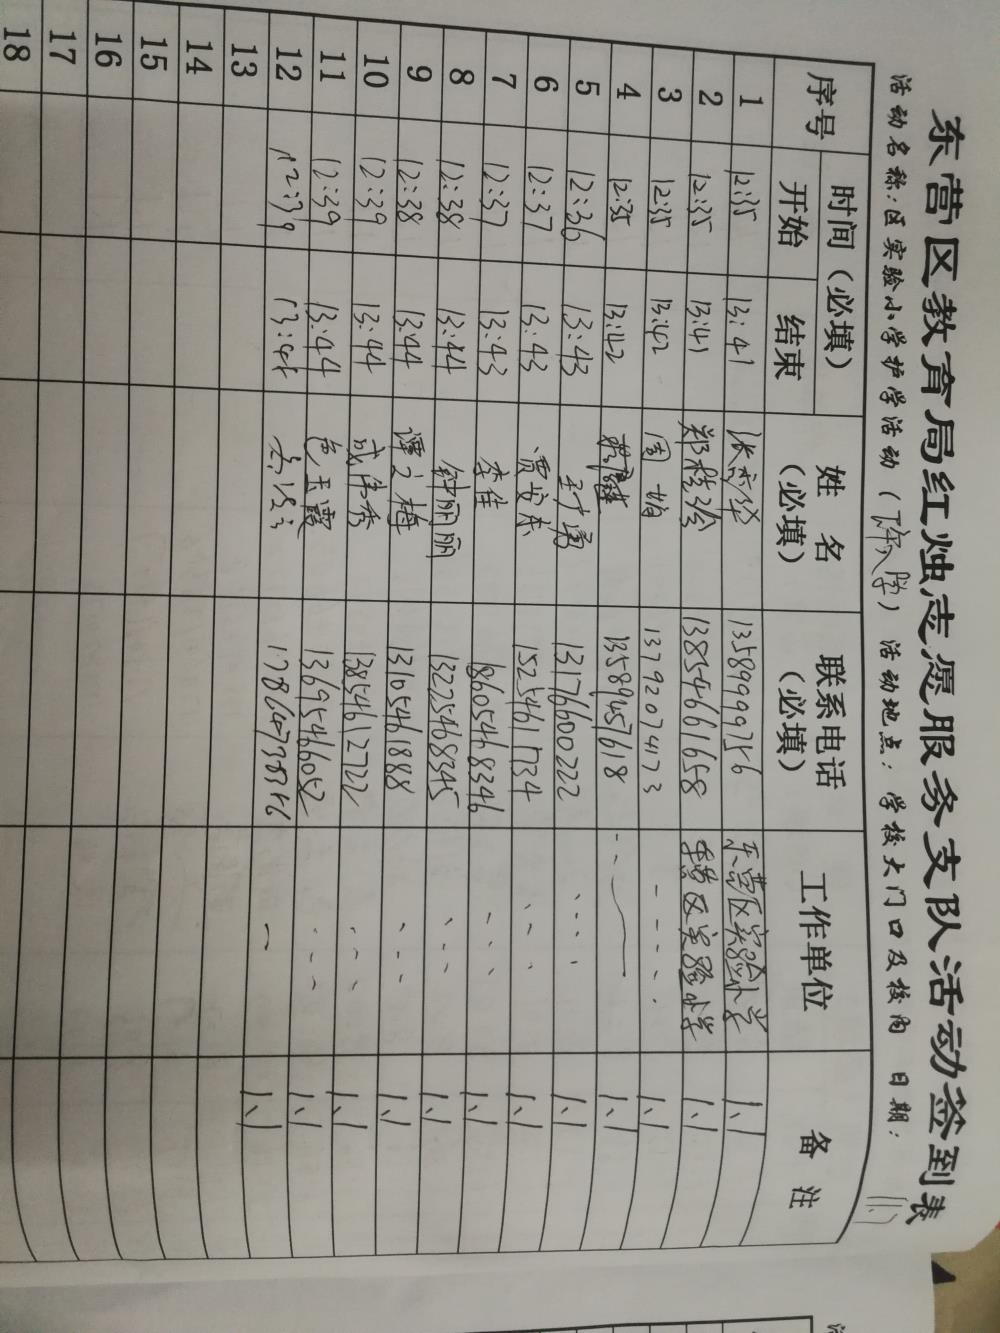 东营区教育局红烛志愿服务支队活动签到表
活动名称：区实验小学护学活动（下午入学） 活动地点：学校大门口及校内 日期：11.1
序号 时间（必填） 姓名（必填） 联系电话（必填） 工作单位 备注
开始 结束
1 12:35 13:41 13589999756 东营区实验小学 1.1
2 12:35 13:41 13854661658 东营区实验小学 1.1
3 12:35 13:42 周娟 13792074173 1.1
4 12:35 13:42 13589457618 1.1
5 12:36 13:43 13176600222 1.1
6 12:37 13:43 贾安东 1525461734 1.1
7 12:37 13:43 李佳 18605468346 1.1
8 12:38 13:44 钟丽丽 13225468345 1.1
9 12:38 13:44 谭文梅 13105461888 1.1
10 12:39 13:44 成伟秀 13854612722 1.1
11 12:39 13:44 色玉霞 13695466052 1.1
12 12:39 13:44 1.1
13
14
15
16
17
18